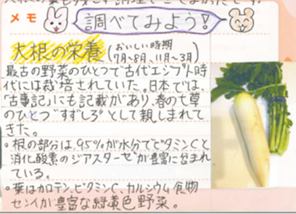 メモ
調べてみよう!
大根の栄養 (おいしい時期 7月~8月、11月~3月)
最古の野菜のひとつで古代エジプト時
代には栽培されていた。日本では、
「古事記」にも記載があり、春の七草
のひとつ"すずしろ"として親しまれて
きた。
・根の部分は、95%が水分でビタミンCと
消化酸素のジアスターゼが豊富に含まれ
ている。
・葉はカロテン、ビタミンC、カルシウム、食物
センイが豊富な緑黄色野菜。